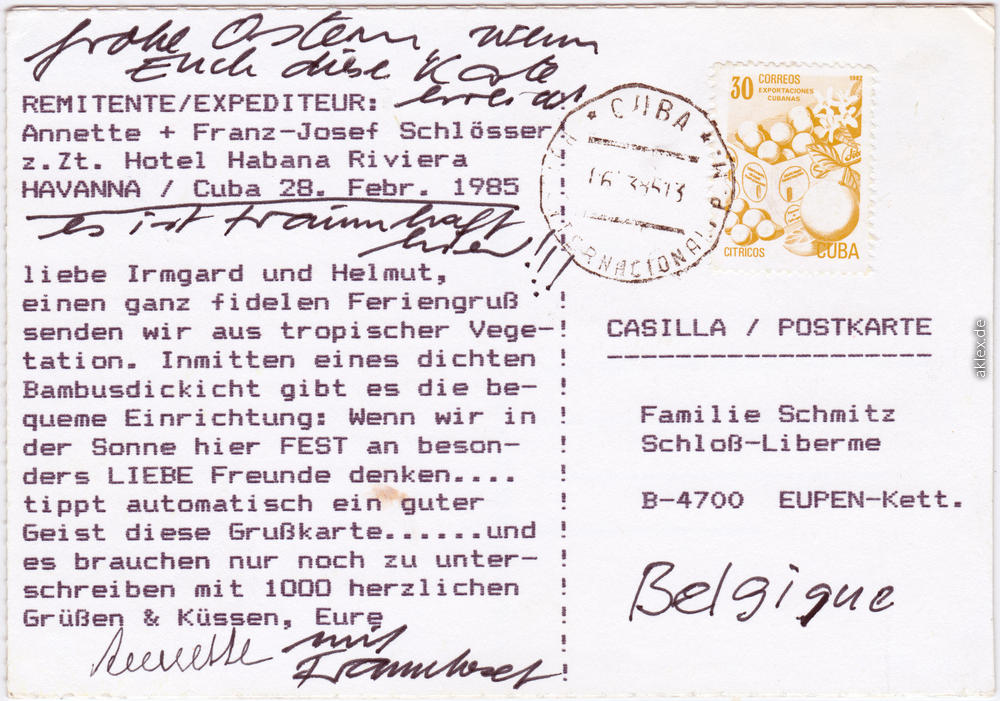 frohe Ostern, wenn
Euch diese Karte
erreicht
REMITENTE/EXPEDITEUR:
Annette + Franz-Josef Schlösser
z.Zt. Hotel Habana Riviera
HAVANNA / Cuba 28. Febr. 1985
es ist traumhaft
hier!!!
liebe Irmgard und Helmut,
einen ganz fidelen Feriengruß
senden wir aus tropischer Vege-
tation. Inmitten eines dichten
Bambusdickicht gibt es die be-
queme Einrichtung: Wenn wir in
der Sonne hier FEST an beson-
ders LIEBE Freunde denken....
tippt automatisch ein guter
Geist diese Grußkarte......und
es brauchen nur noch zu unter-
schreiben mit 1000 herzlichen
Grüßen & Küssen, Eure
Annette mit
Franzjosef
CUBA
INTERNACIONAL
30 CORREOS
1982
EXPORTACIONES
CUBANAS
CITRICOS
CUBA
CASILLA / POSTKARTE
Familie Schmitz
Schloß-Liberme
B-4700 EUPEN-Kett.
Belgique
aklex.de